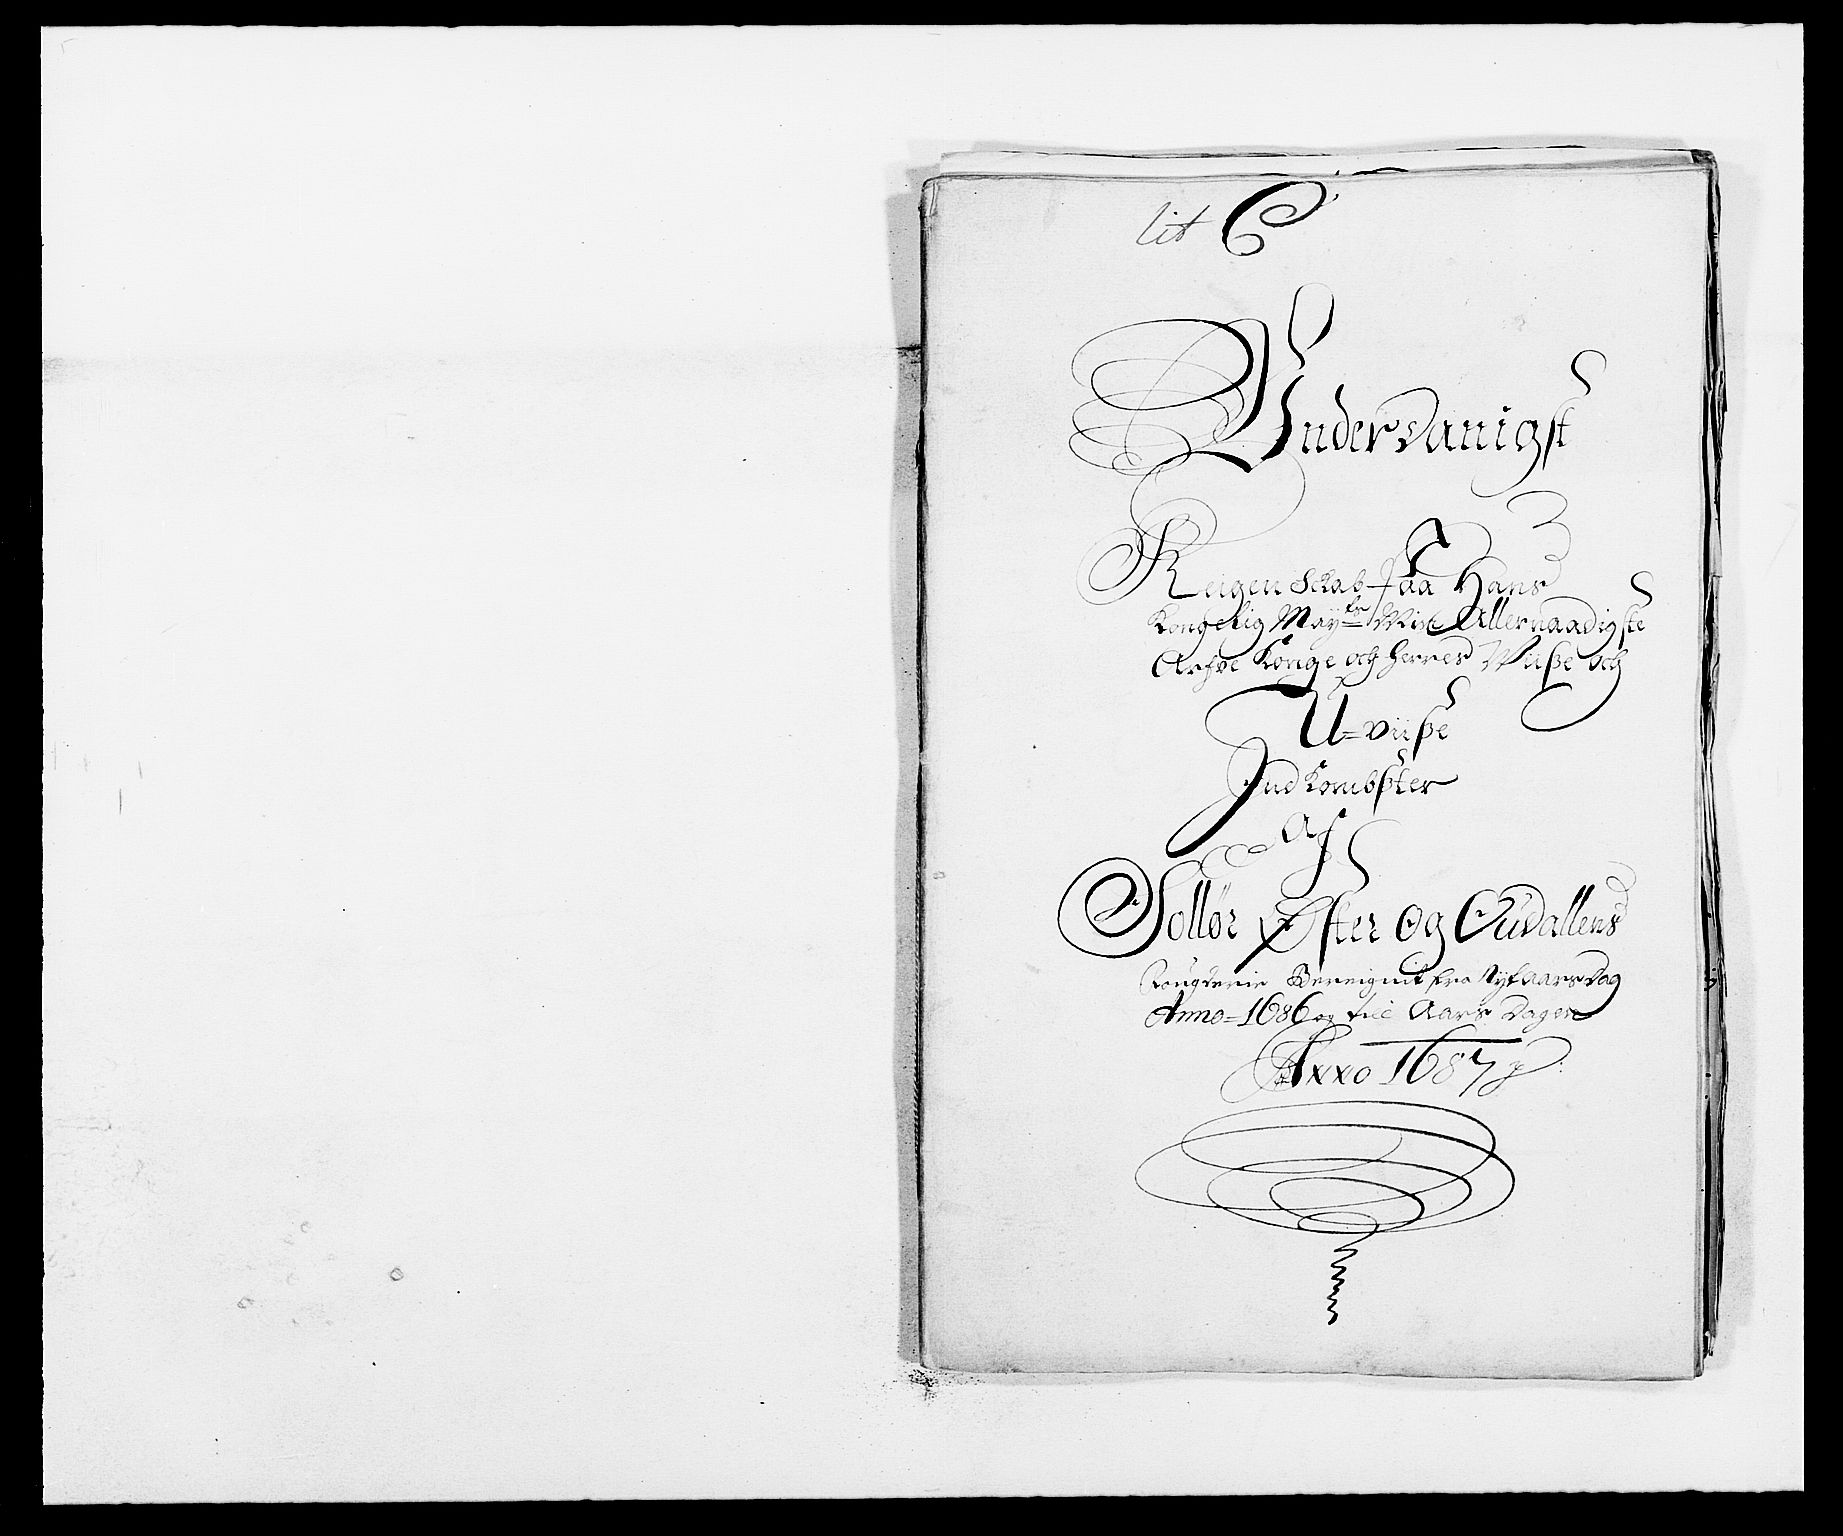 Lit C
Underdanigst
Reigenschab Paa Hans
Kongelig Mayts Min Allernaadigste
Arfve Konge och Herres Wiiße och
U-viiße
Indkombster
Af
Sollør Øster og Oudallens
Fougderie Bereignit fra Nytaarsdag
Anno-1686 og til Aars Dagen
Anno 1687